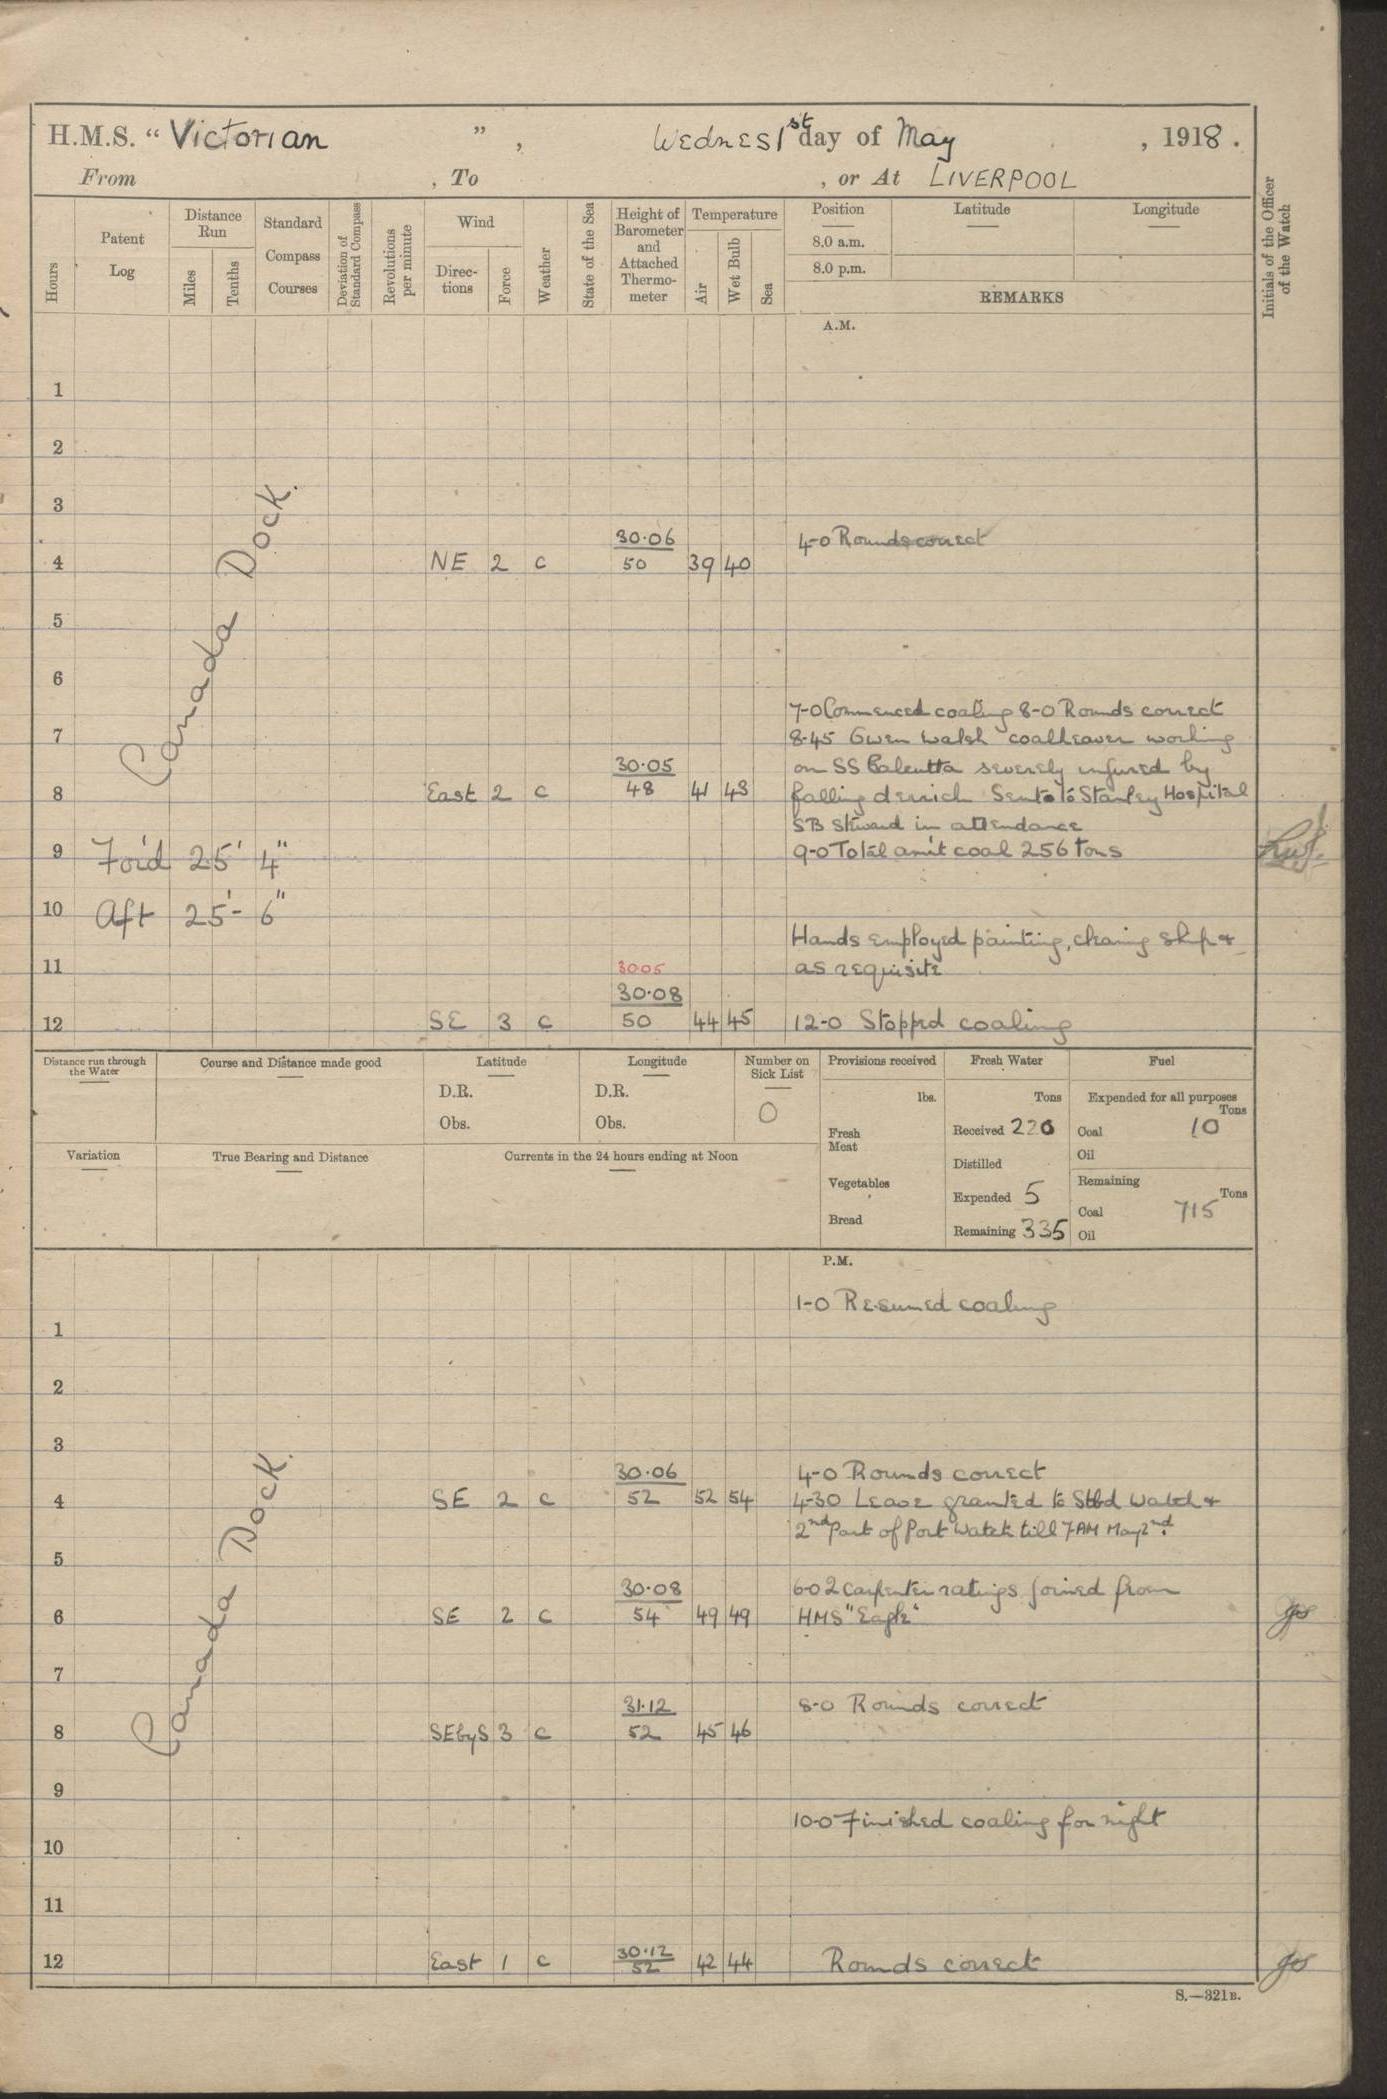 H.M.S. “ Victorian ” , Wednes 1st day of May , 1918 .
From , To , or At LIVERPOOL
Hours
Patent Log
Distance Run
Miles
Tenths
Standard Compass Courses
Deviation of Standard Compass
Revolutions per minute
Wind
Direc-tions
Force
Weather
State of the Sea
Height of Barometer and Attached Thermo-meter
Temperature
Air
Wet Bulb
Sea
Position
Latitude
Longitude
8.0 a.m.
8.0 p.m.
REMARKS
Initials of the Officer of the Watch
A.M.
1
2
3
Canada Dock.
30.06
4-0 Rounds correct
4 NE 2 c 50 39 40
5
6
7-0 Commenced coaling 8-0 Rounds correct
7 8-45 Gwen Walsh coalheaver working
30.05 on SS Calcutta severely injured by
8 East 2 c 48 41 43 falling derrick Sent to Stanley Hospital
SB Steward in attendance
9 For'd 25' 4" 9-0 Total am't coal 256 tons
10 Aft 25'- 6"
Hands employed painting, cleaning ship &
11 3005 as requisite
30.08
12 SE 3 c 50 44 45 12-0 Stopped coaling
Distance run through the Water
Course and Distance made good
Latitude
D.R.
Obs.
Longitude
D.R.
Obs.
Number on Sick List
0
Provisions received
lbs.
Fresh Meat
Vegetables
Bread
Fresh Water
Tons
Received 220
Distilled
Expended 5
Remaining 335
Fuel
Expended for all purposes
Tons
Coal 10
Oil
Remaining
Tons
Coal 715
Oil
Variation
True Bearing and Distance
Currents in the 24 hours ending at Noon
P.M.
1-0 Resumed coaling
1
2
3
Canada Dock.
30.06 4-0 Rounds correct
4 SE 2 c 52 52 54 4-30 Leave granted to Stbd Watch &
2nd Part of Port Watch till 7AM May 2nd.
5
30.08 6-0 2 Carpenter ratings joined from
6 SE 2 c 54 49 49 HMS "Eagle"
7
31.12 8-0 Rounds correct
8 SEbyS 3 c 52 45 46
9
10-0 Finished coaling for night
10
11
30.12
12 East 1 c 52 42 44 Rounds correct
S.—321B.